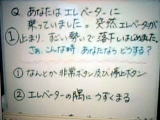 Q あなたはエレベーターに
乗っていました。突然エレベーターが
①止まり、すごい勢いで落下しはじめた。
さぁ、こんな時あなたならどうする?
① なんとか非常ボタン及び停止ボタン
② エレベーターの隅にうずくまる